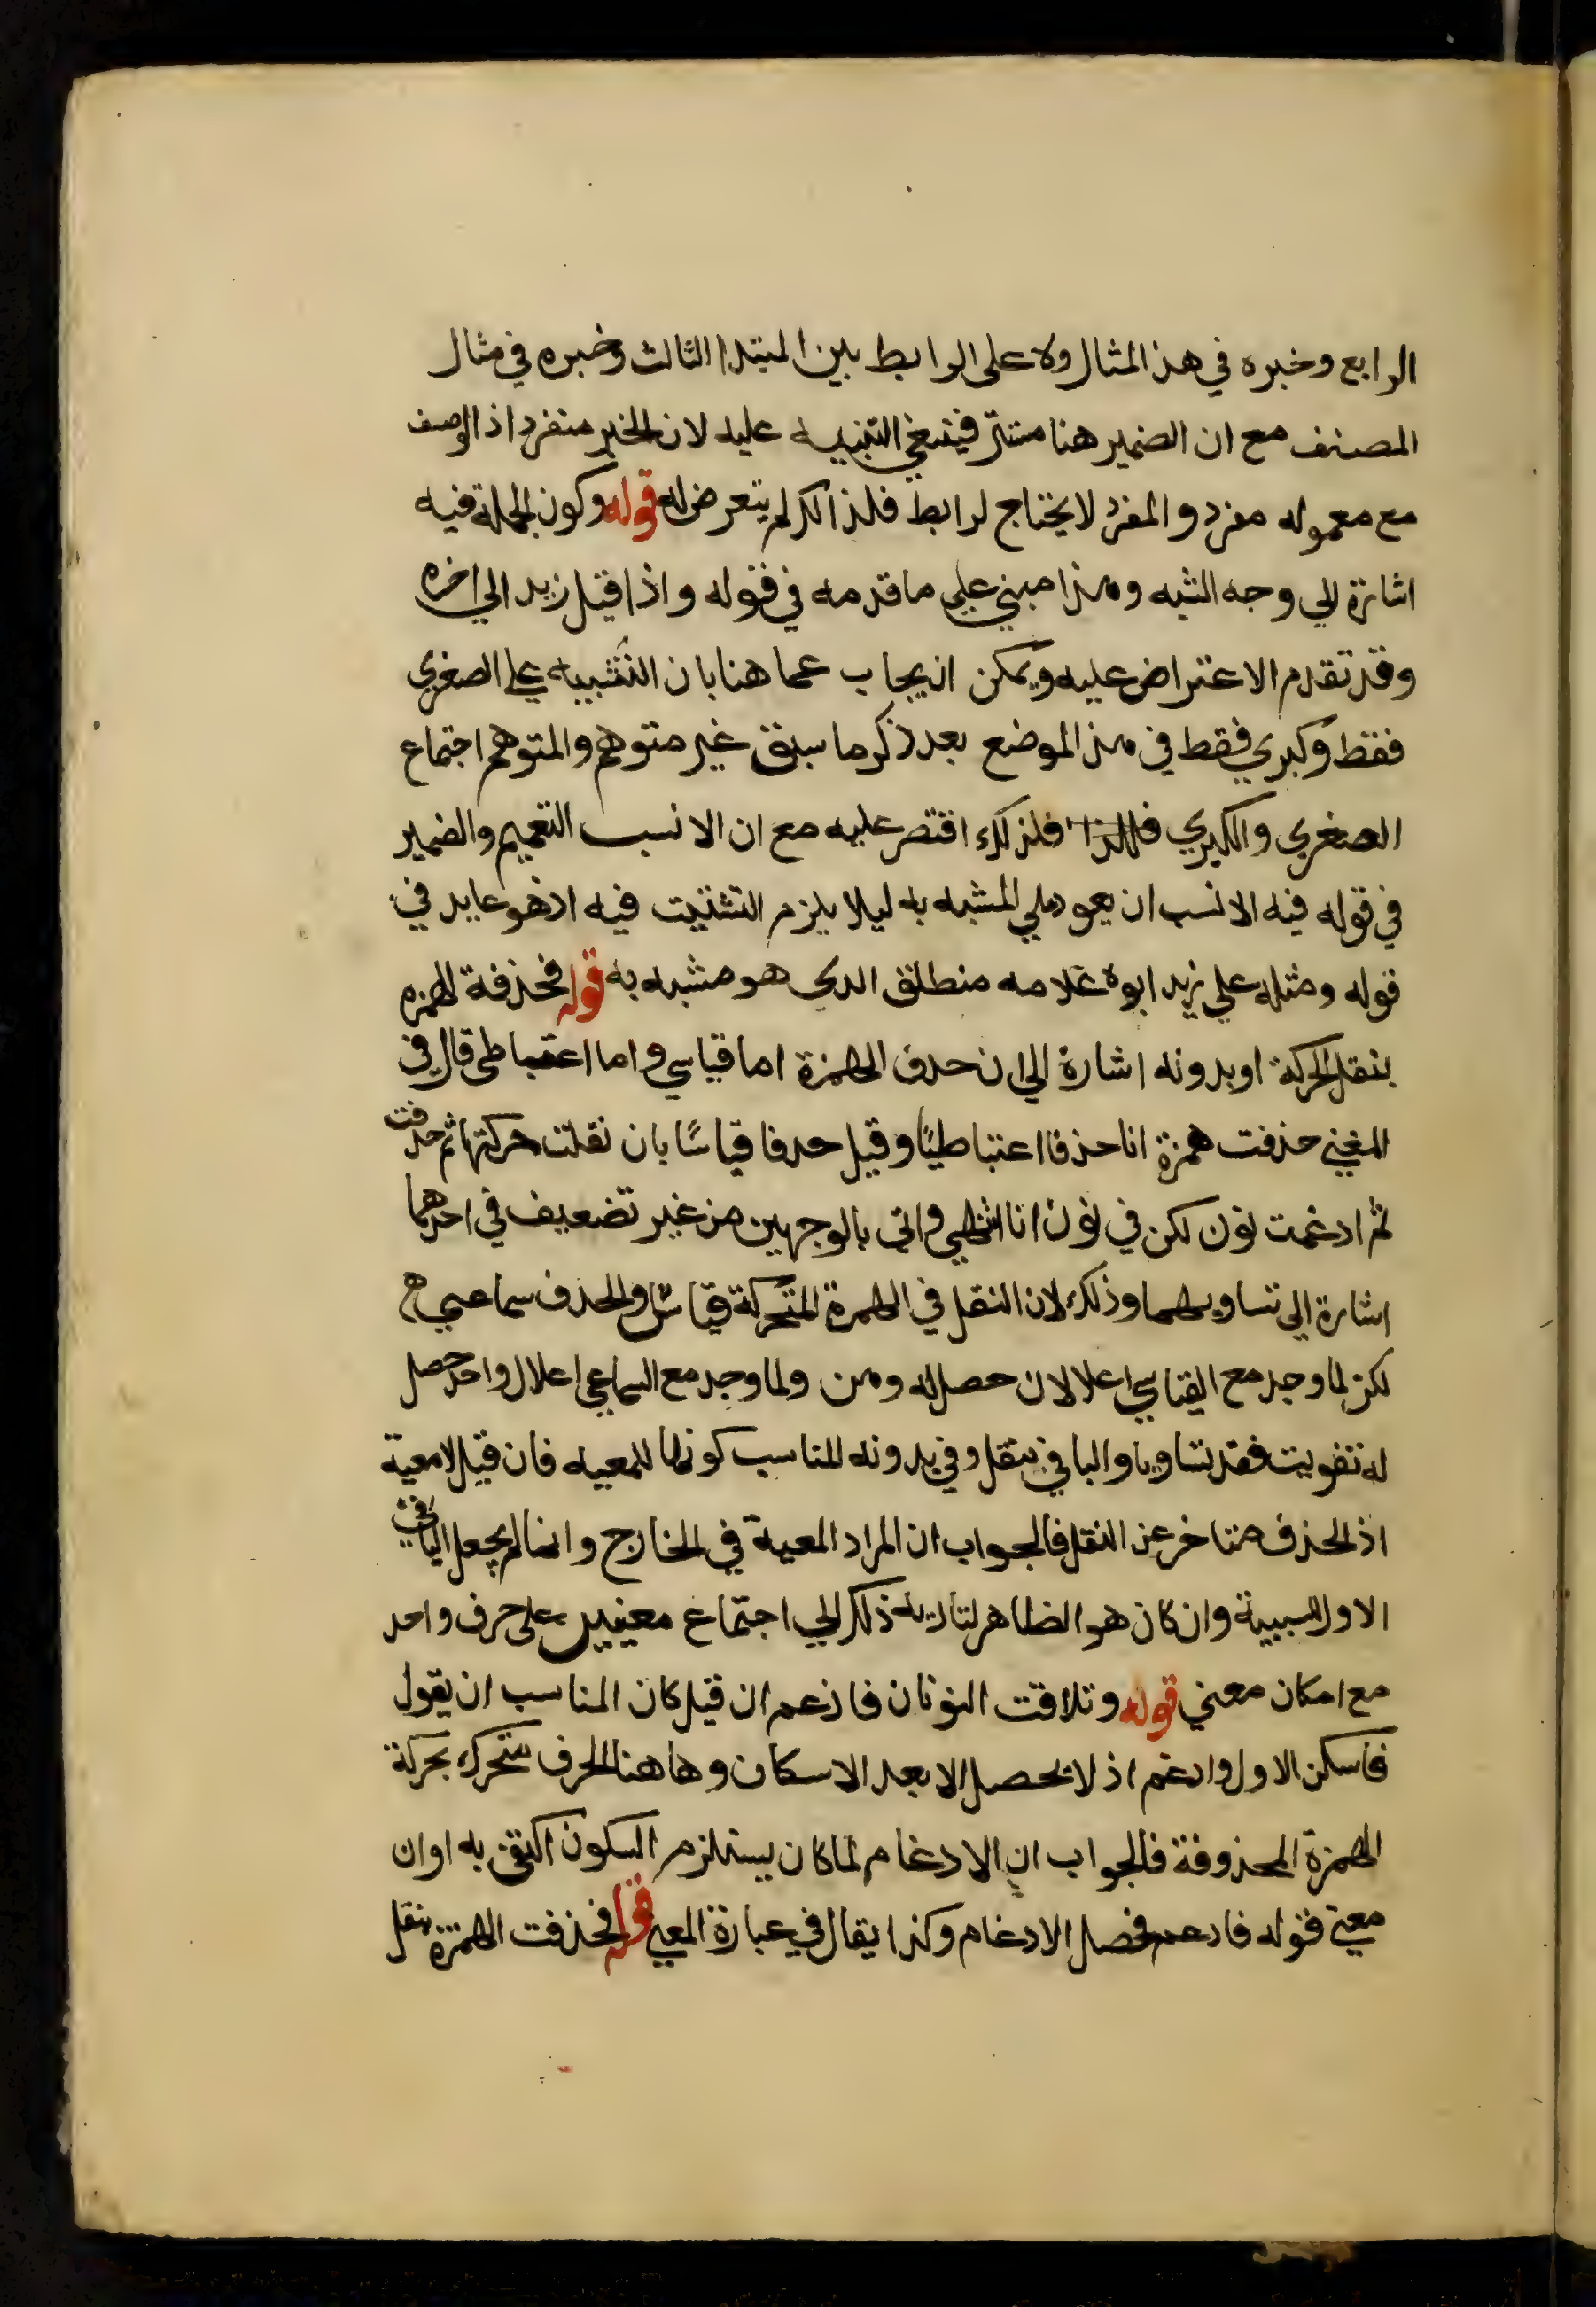 الرابع وخبره في هذا المثال ولا على الرابط بين المبتدا الثالث وخبره في مثال
المصنف مع ان الضمير هنا مستتر فينبغي التنبيه عليه لان الخبر منفرد اذ الوصف
مع معموله مفرد والمفرد لا يحتاج لرابط فلذالك لم يتعرض له قوله وكون الجملة فيه
اشارة الي وجه الشبه وهذا مبني علي ما قدمه في قوله واذا قيل زيد الي اخره
وقد تقدم الاعتراض عليه ويمكن ان يجاب عما هنا بان التشبيه علي الصغري
فقط وكبري فقط في هذا الموضع بعد ذكر ما سبق غير متوهم والمتوهم اجتماع
الصغري والكبري فلذلك اقتصر عليه مع ان الانسب التعميم والضمير
في قوله فيه الانسب ان يعود علي المشبه به ليلا يلزم التشتيت فيه اذ هو عايد في
قوله ومثله علي زيد ابوه غلامه منطلق الدي هو مشبه به قوله فحذفة الهمزه
بنقل الحركة او بدونه اشارة الي ان حدف الهمزة اما قياسي واما اعتباطي قال في
المغني حذفت همزة انا حذفا اعتباطيًا وقيل حدفا قياسًا بان نقلت حركتها ثم حدفت
ثم ادغمت نون لكن في نون انا انتهي واتي بالوجهين من غير تضعيف في احدهما
اشارة الي تساويهما وذلك لان النقل في الهمزة المتحركة قياس والحدف سماعي
لكن لما وجد مع القياسي اعلالان حصل له وهن ولما وجد مع السماعي اعلال واحد حصل
له تقويت فقد تساويا والبا في بنقل وفي بدونه المناسب كونها للمعيه فان قيل لا معية
اذ الحذف متاخر عن النقل فالجواب ان المراد المعية في الخارج وانما لم يجعل البا في
الاول للسببية وان كان هو الظاهر لتاديه ذلك الي اجتماع معنيين علي حرف واحد
مع امكان معني قوله وتلاقت النونان فادغم ان قيل كان المناسب ان يقول
فاسكن الاول وادغم اذ لا يحصل الا بعد الاسكان وهاهنا الحرف متحرك بحركة
الهمزة المحذوفة فالجواب ان الادغام لما كان يستلزم السكون اكتفي به او ان
معني قوله فادغم فحصل الادغام وكذا يقال في عبارة المغني قوله فحذفت الهمزة بنقل